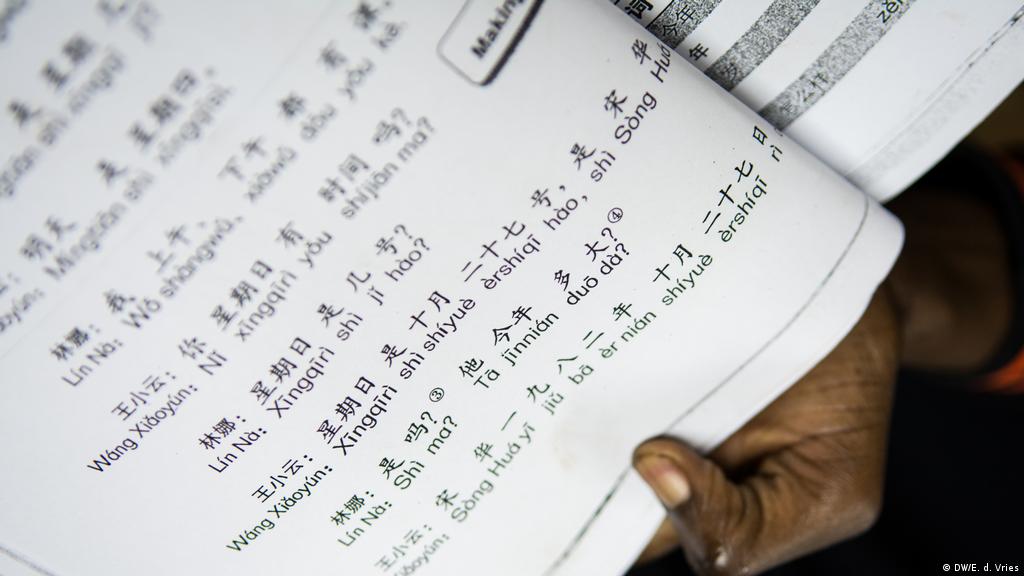 是 星期
是 星期日
shì xīngqīrì.
明天
Míngtiān shì
下午 都 有 课。
xiàwǔ dōu yǒu kè.
林娜：我 上午、
Lín Nà: Wǒ shàngwǔ,
王小云：你 星期日 有 时间 吗？
Wáng Xiǎoyún: Nǐ xīngqīrì yǒu shíjiān ma?
林娜：星期日 是 几 号？
Lín Nà: Xīngqīrì shì jǐ hào?
王小云：星期日 是 十月 二十七 号，是 宋 华
Wáng Xiǎoyún: Xīngqīrì shì shíyuè èrshíqī hào, shì Sòng Huá
林娜：是 吗？③ 他 今年 多 大？④
Lín Nà: Shì ma? Tā jīnnián duō dà?
王小云：宋 华 一 九 八 二 年 十月 二十七 日
Xiǎoyún: Sòng Huá yī jiǔ bā èr nián shíyuè èrshíqī rì
Making
词
今年
年
© DW/E. d. Vries